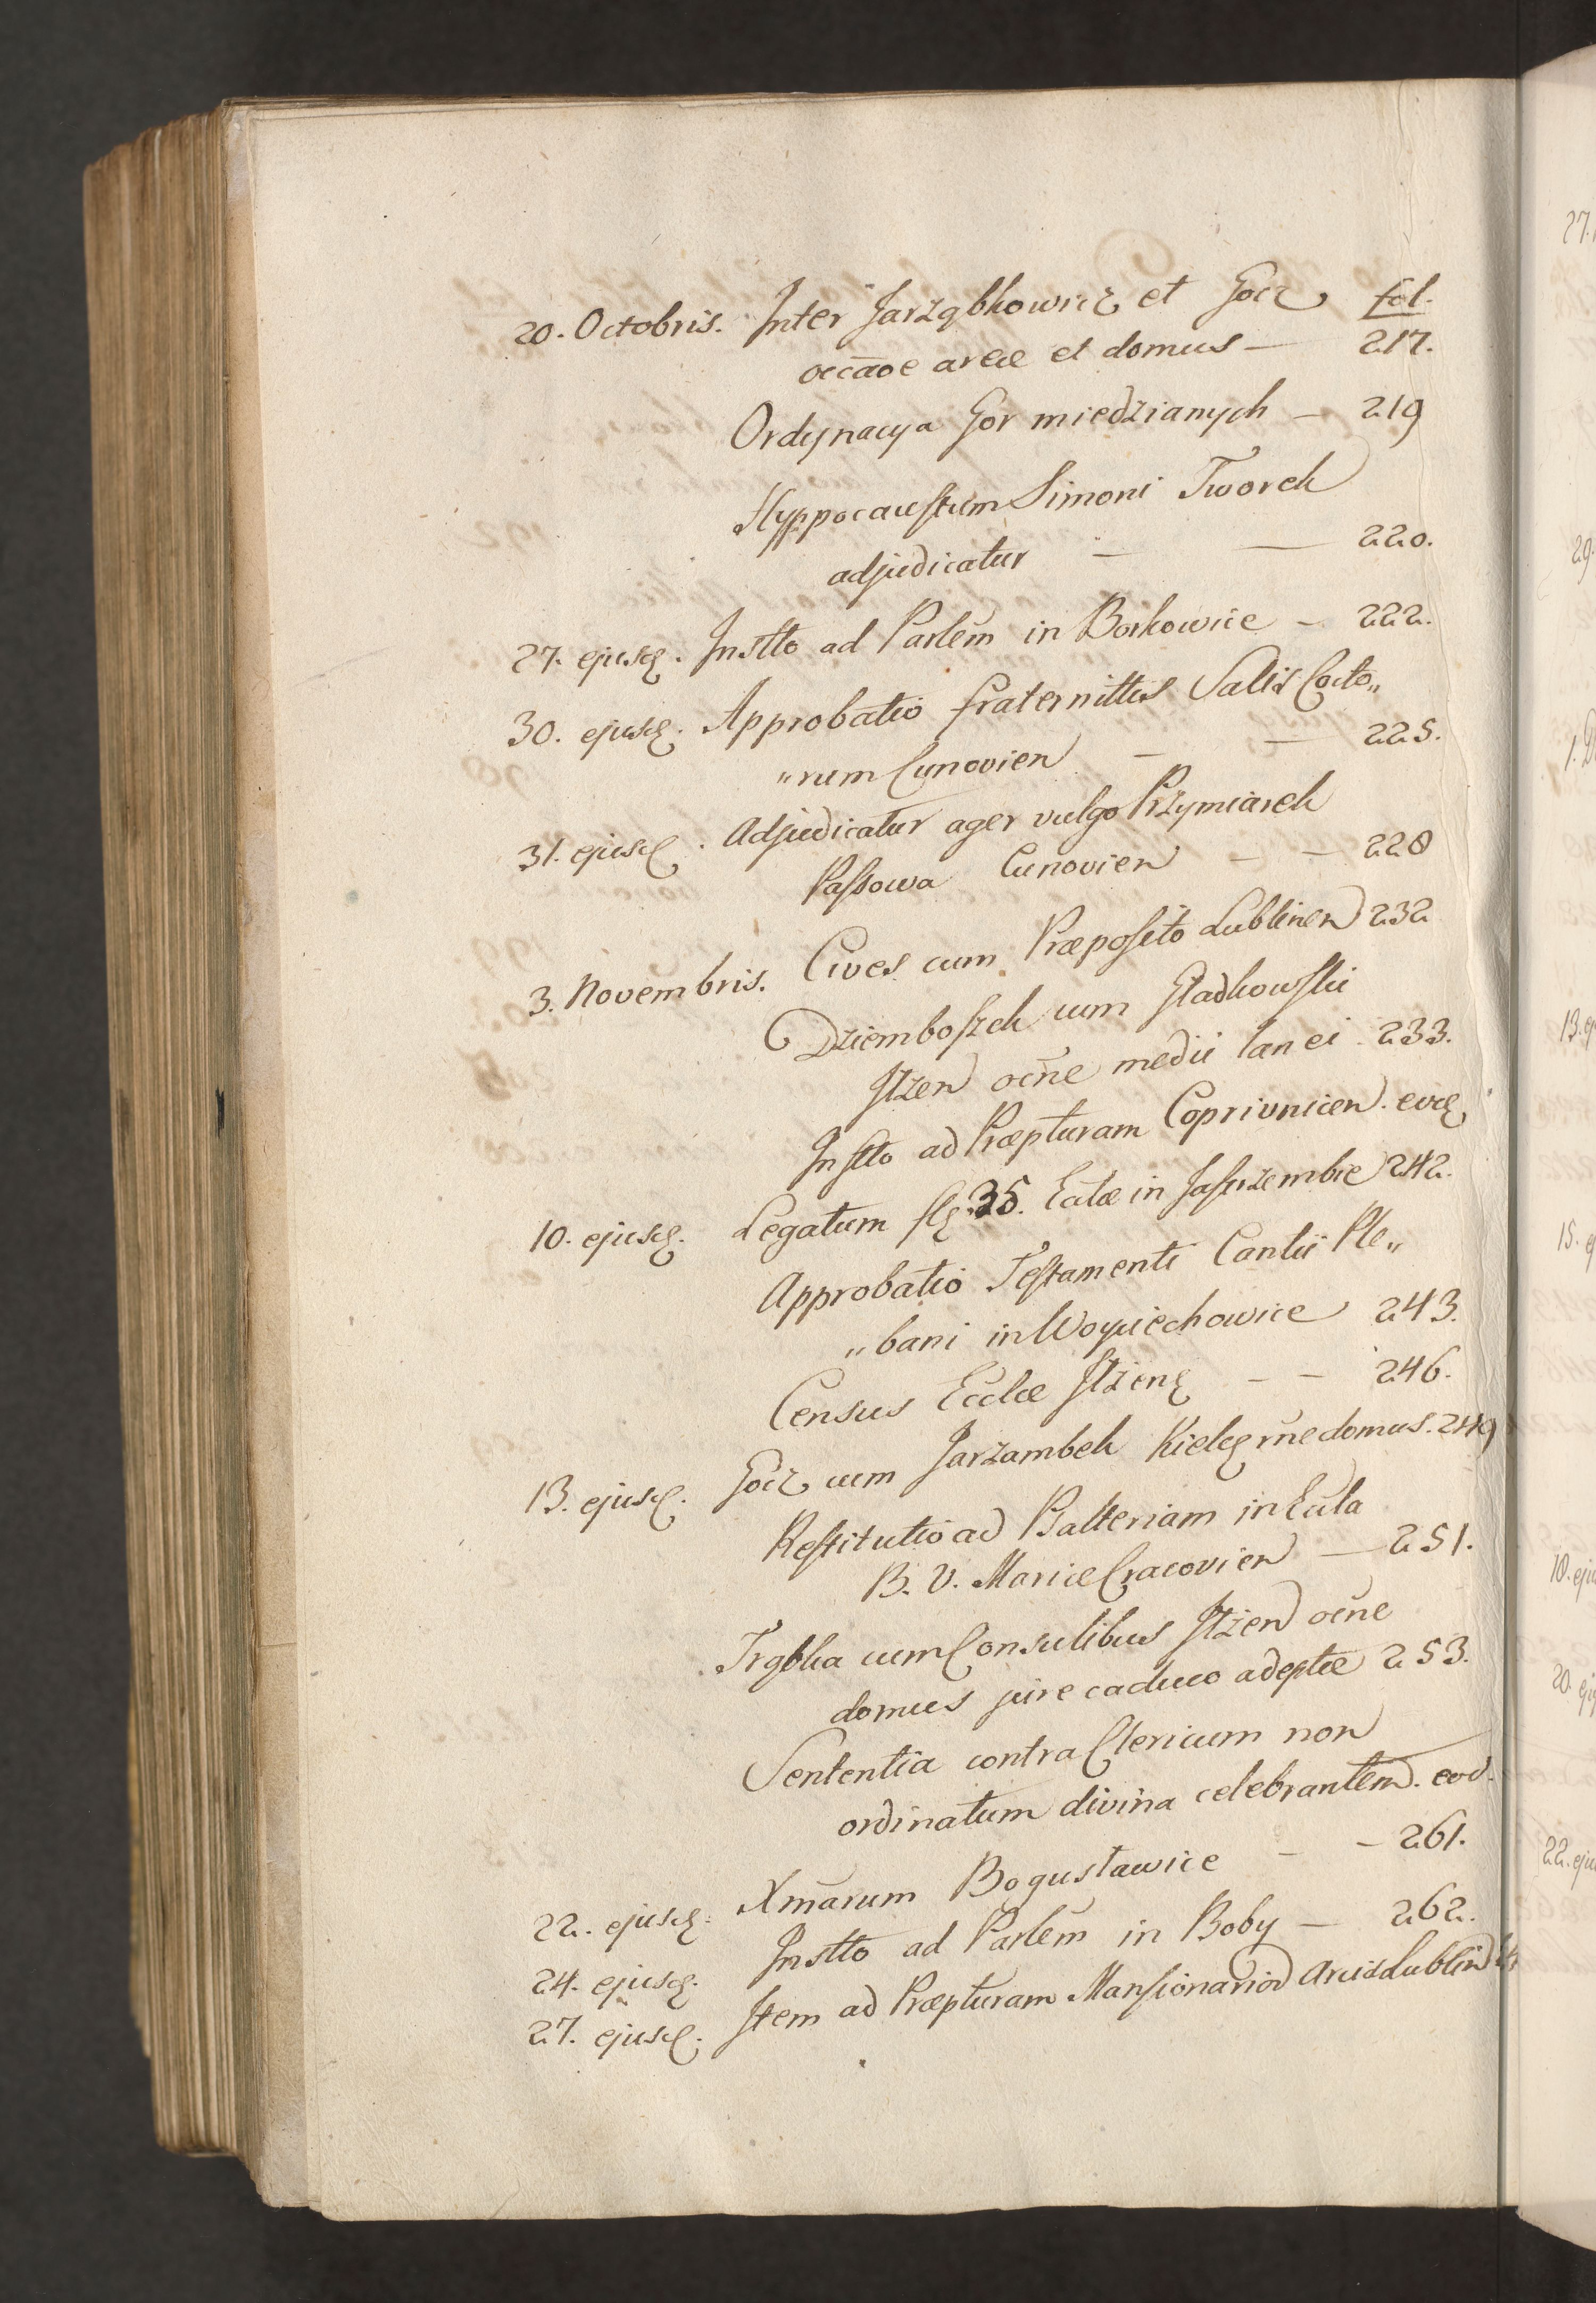 20. Octobris. Inter Jarząbkowicz et Gocz fol.
occāoe areæ et domus — 217.
Ordynacya Gor miedzianych — 219
Hyppocaustum Simoni Tworek
adjudicatur — — 220.
27. ejusd. Instto ad Parlem in Borkowice — 222.
30. ejusd. Approbatio fraternittis Salis Cocto„
„rum Cunovien — — 225.
31. ejusd. Adjudicatur ager vulgo Przymiarek
Passowa Cunovien — — 228
3. Novembris. Cives cum Præposito Lublinen 232
Dziemboszek cum Gladkowski
Jlzen ocñe medii lanei 233.
Instto ad Præpturam Coprivnicen. eod.
10. ejusd. Legatum fl. 35. Ecclæ in Jastrzembie 242.
Approbatio Testamenti Cantii Ple„
„bani in Woyciechowice 243.
Census Ecclæ Jlżen — — 246.
13. ejusd. Gocz cum Jarzambek Kielc. rñe domus. 249
Restitutio ad Psalteriam in Eccla
B. V. Mariæ Cracovien — 251.
Trąbka cum Consulibus Jlżen ocñe
domus jure caduco adeptæ 253.
Sententia contra Clericum non
ordinatum divina celebrantem. eod.
22. ejusd. Xmarum Bogusławice — — 261.
24. ejusd. Instto ad Parlem in Boby — 262.
27. ejusd. Item ad Præpturam Mansionarior Arcis Lublin
27.
29.
1. D
13. ej
15. e
18. eju
20. ej
22. eju